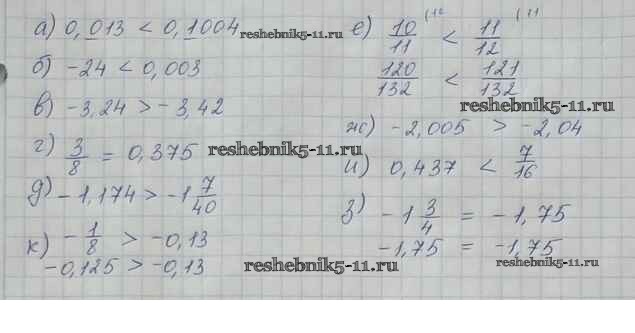 а) 0,013 < 0,1004
reshebnik5-11.ru
б) -24 < 0,003
в) -3,24 > -3,42
г) 3/8 = 0,375
reshebnik5-11.ru
д) -1,174 > -1 7/40
к) -1/8 > -0,13
-0,125 > -0,13
reshebnik5-11.ru
е) 10/11 (12 < 11/12 (11
120/132 < 121/132
reshebnik5-11.ru
ж) -2,005 > -2,04
и) 0,437 < 7/16
з) -1 3/4 = -1,75
-1,75 = -1,75
reshebnik5-11.ru